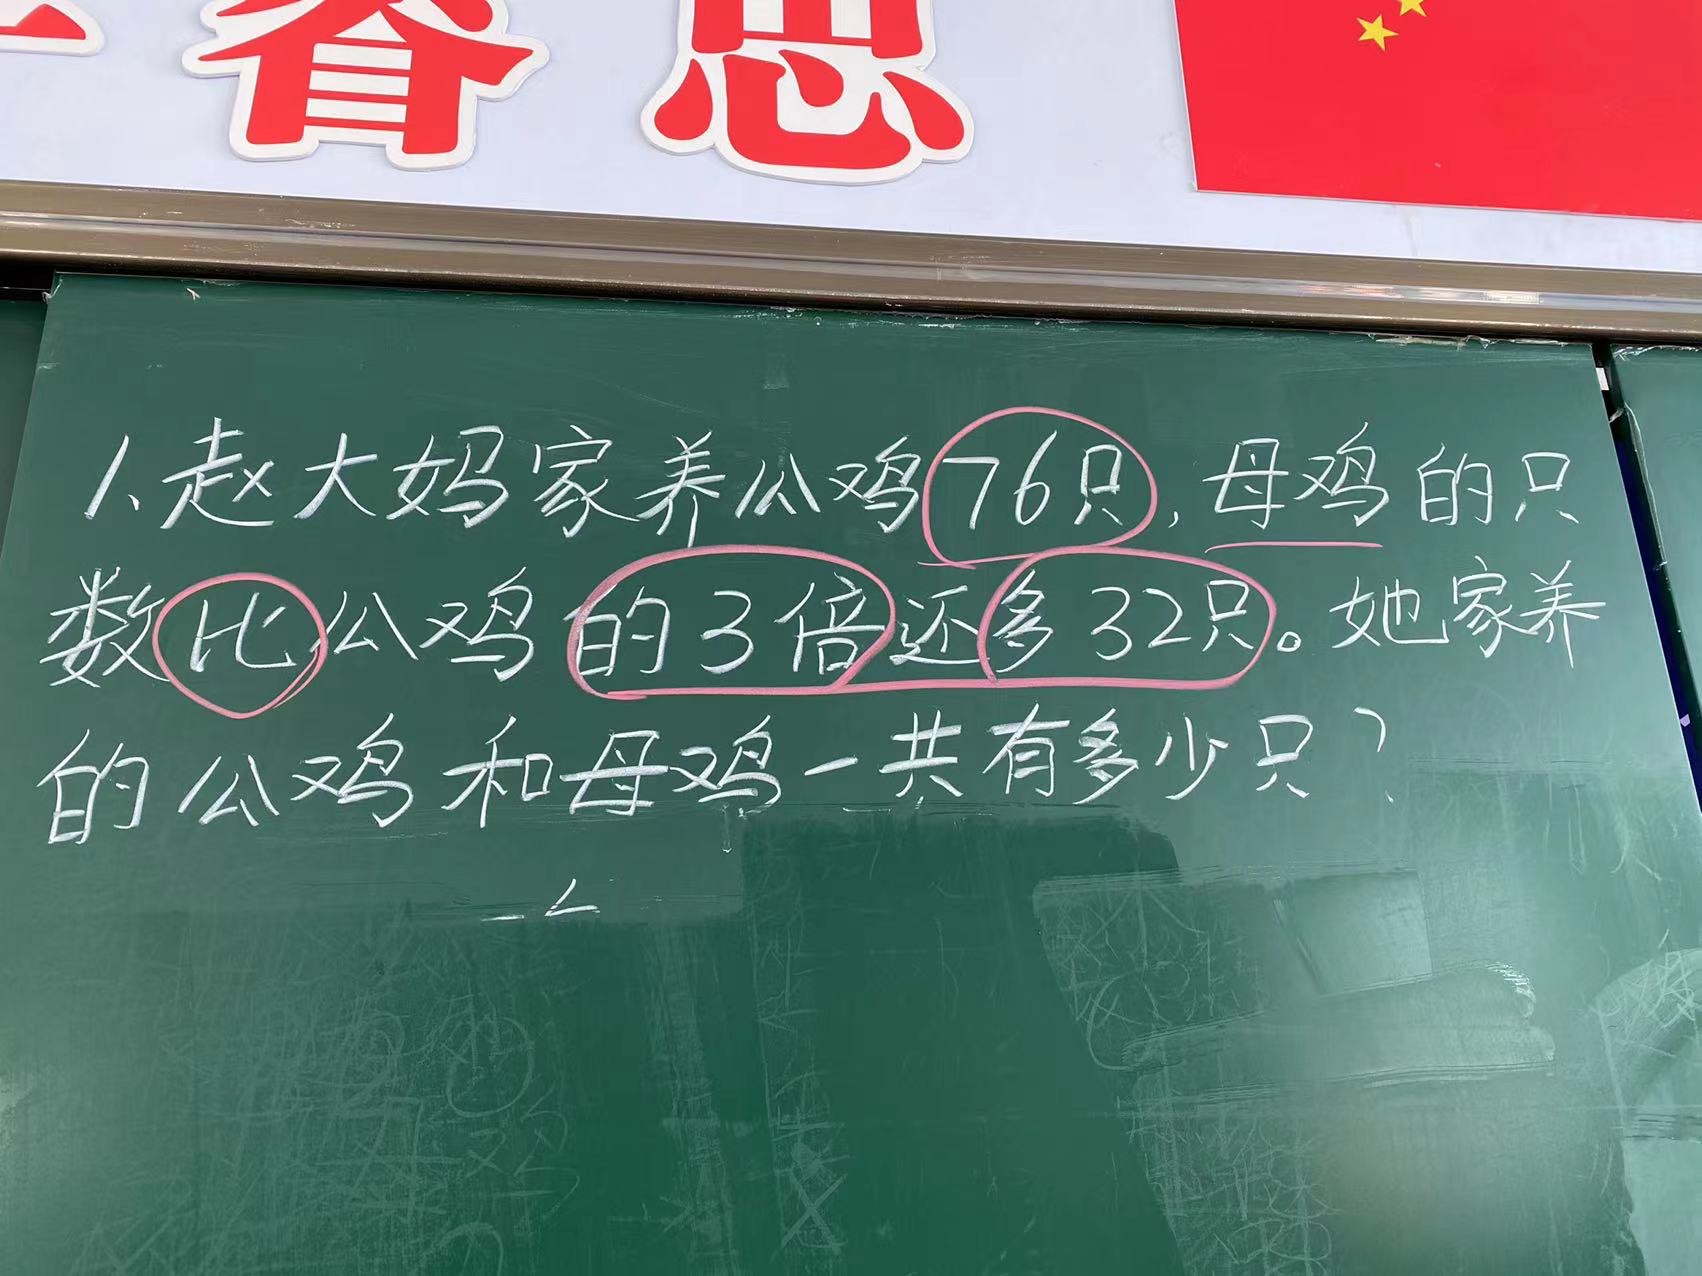 睿思
1、赵大妈家养公鸡76只,母鸡的只
数比公鸡的3倍还多32只。她家养
的公鸡和母鸡一共有多少只?